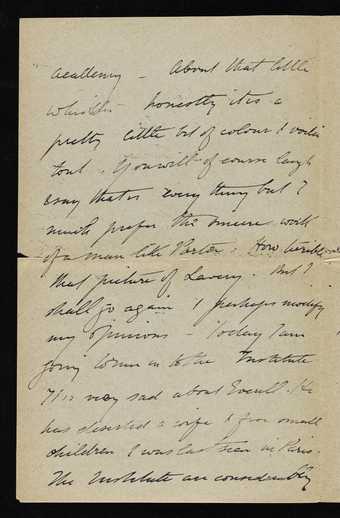 academy – About that little
Whistler – honestly it is a
pretty little bit of colour & voila
tout. You will of course laugh
& say that is everything but I
much prefer the sincere work
of a man like
that picture of Lavery. But I
shall go again & perhaps modify
my opinions – Today I am
going to the Institute
It is very sad about . He
has deserted a wife & five small
children & was last seen in Paris.
The Institute are considerably